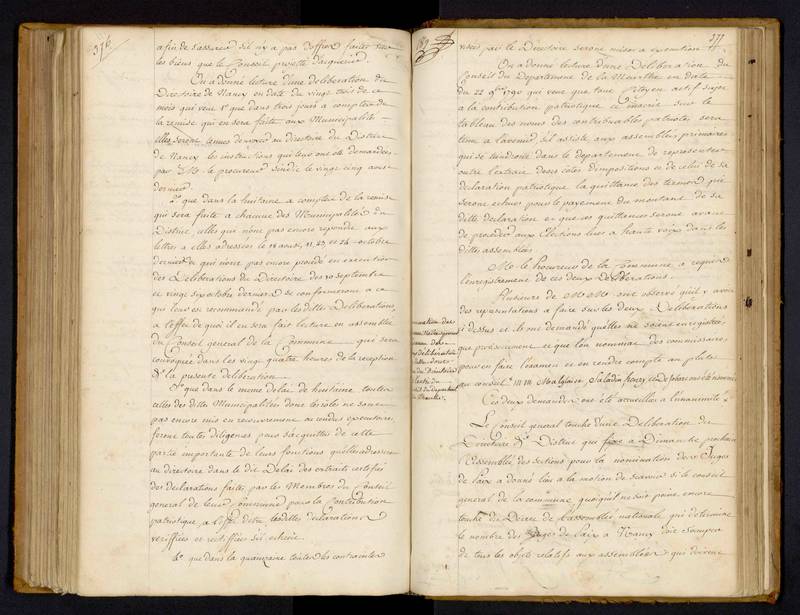 376
afin de s'assurer s'il n'y a pas d'offres faites sur
les biens que le Conseil projette d'acquerir.
On a donné lecture d'une deliberation du
Directoire de Nancy en date du vingt trois de ce
mois qui veut 1º que dans trois jours a compter de
la remise qui en sera faite aux Municipalités
elles seront tenues d'envoier au directoire du District
de Nancy les instructions qui leur ont été demandées
par M. le procureur sindic le vingt cinq aoust
dernier.
2º que dans la huitaine a compter de la remise
qui sera faite a chacune des Municipalités du
District, celles qui n'ont pas encore repondu aux
lettres a elles adressées le 18 aout, 11, 23 et 24 octobre
dernier et qui n'ont pas encore procedé en execution
des Deliberations du Directoire des 30 septembre
et vingt six octobre dernier se conformeront a ce
qui leur est recommandé par lesdittes Deliberations,
a l'effet de quoi il en sera fait lecture en assemblée
du Conseil general de la Commune qui sera
convoquée dans les vingt quatre heures de la reception
de la presente deliberation
3º que dans le meme delai de huitaine toutes
celles des dittes Municipalités dont les rôles ne sont
pas encore mis en recouvrement ou rendus executoires,
feront toutes diligences pour s'acquitter de cette
partie importante de leurs fonctions qu'elles adresseront
au directoire dans le dit Delai des extraits certifiés
des declarations faites par les Membres du Conseil
general de leur Commune pour la Contribution
patriotique, a l'effet d'etre lesdittes declarations
verifiées et rectifiées s'il echeait.
4º que dans la quinzaine toutes les contraintes
189
377
visées par le Directoire seront mises a execution
On a donné lecture d'une Deliberation du
Conseil du Departement de la Meurthe en date
du 22 9bre 1790 qui veut que tout Citoyen actif sujet
a la contribution patriotique et inscrit sur le
tableau des noms des contribuables patriotes sera
tenu a l'avenir s'il assiste aux assemblées primaires
qui se tiendront dans le departement de representer
outre l'extrait de ses cotes d'impositions et de celui de sa
declaration patriotique la quittance des termes qui
seront echus pour le payement du montant de sa
ditte declaration et que ces quittances seront avant
de proceder aux Elections lues a haute voix dans les
dittes assemblées
M. le Procureur de la Commune a requis
l'enregistrement de ces deux Deliberations.
Plusieurs de MM. ont observé qu'il y avoit
des representations a faire sur les deux Deliberations
ci dessus et ils ont demandé qu'elles ne soient enregistrées
que provisoirement et que l'on nommat des commissaires
pour en faire l'examen et en rendre compte au plutot
au conseil. MM. Malglaive, Saladin, henry, et ont été nommés
Ces deux demandes ont été accueillies a l'unanimité.
Le Conseil general touché d'une Deliberation du
Directoire du District que fixe a Dimanche prochain
l'assemblée des sections pour la nomination de Juges
de Paix a donné lieu a la motion de sçavoir si le conseil
general de la commune quoiqu'il ne soit point encore
touché du Decret de l'assemblée nationale qui determine
le nombre des Juges de Paix a Nancy doit s'occuper
de tous les objets relatifs aux assemblées qui doivent